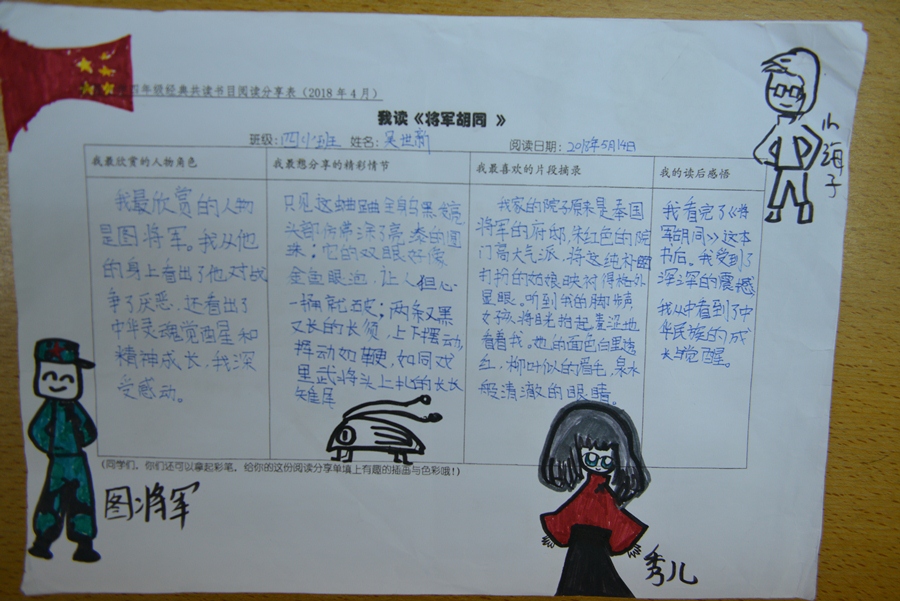 四年级经典共读书目阅读分享表（2018年4月）
我读《将军胡同 》
班级:四(1)班 姓名:吴世新 阅读日期:2018年5月14日
我最欣赏的人物角色
我最欣赏的人物
是图将军。我从他
的身上看出了他对战
争了厌恶,还看出了
中华灵魂觉醒和
精神成长,我深
受感动。
我最想分享的精彩情节
只见这蛐蛐全身乌黑,
头部仿佛涂了亮漆的圆
珠:它的双眼好像
金鱼眼泡,让人但心
一桶就破;两条又黑
又长的长须,上下摆动,
挥动如鞭,如同戏
里武将头上扎的长长
雉尾
我最喜欢的片段摘录
我家的院子原来是泰国
将军的府邸,朱红色的院
门高大气派,将这纯朴
打扮的姑娘映衬得格外
显眼。听到我的脚步声,
女孩将目光抬起羞涩地
看着我。她的面色白里透
红,柳叶似的眉毛,泉水
般清澈的眼睛。
我的读后感悟
我看完了《将
军胡同》这本
书后。我受到了
深深的震撼
我从中看到了中
华民族的成
长与觉醒。
(同学们，你们还可以拿起彩笔，给你的这份阅读分享单填上有趣的插画与色彩哦!)
图将军
秀儿
小海子